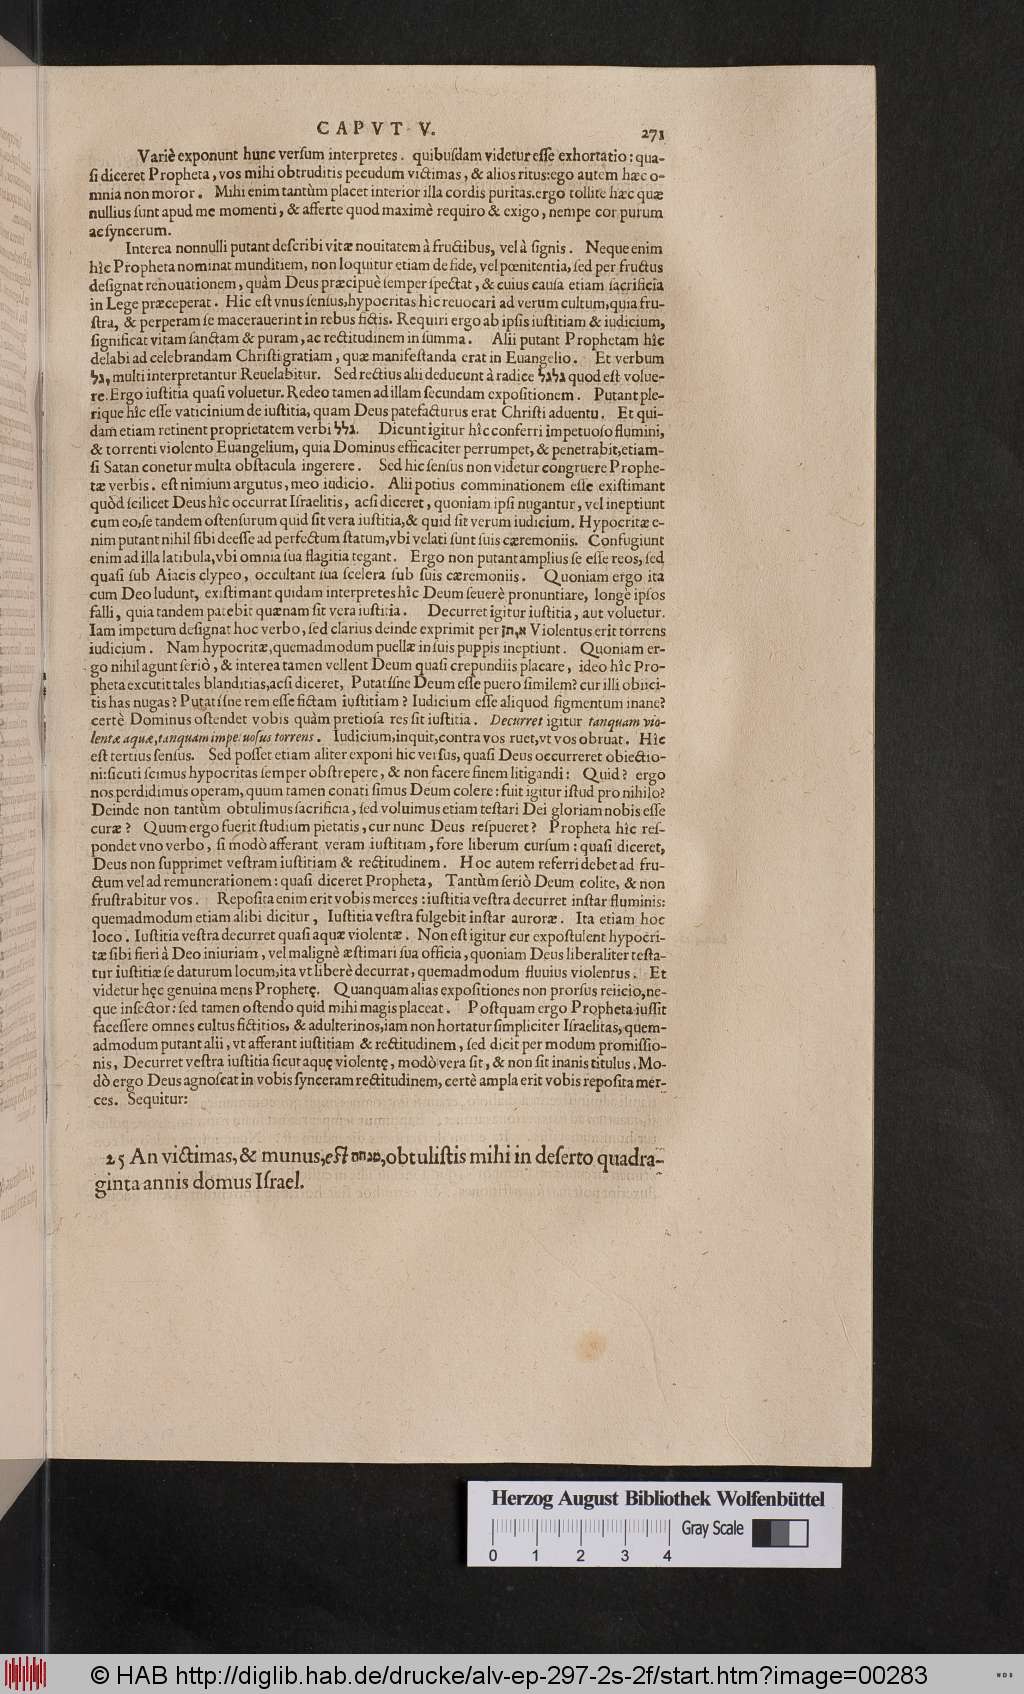 CAPVT V. 271
Variè exponunt hunc verſum interpretes. quibuſdam videtur eſſe exhortatio: qua-
ſi diceret Propheta, vos mihi obtruditis pecudum victimas, & alios ritus: ego autem hæc o-
mnia non moror. Mihi enim tantùm placet interior illa cordis puritas. ergo tollite hæc quæ
nullius ſunt apud me momenti, & afferte quod maximè requiro & exigo, nempe cor purum
ac ſyncerum.
Interea nonnulli putant deſcribi vitæ nouitatem à fructibus, vel à ſignis. Neque enim
hîc Propheta nominat munditiem, non loquitur etiam de fide, vel pœnitentia, ſed per fructus
deſignat renouationem, quàm Deus præcipuè ſemper ſpectat, & cuius cauſa etiam ſacrificia
in Lege præceperat. Hic eſt vnus ſenſus, hypocritas hic reuocari ad verum cultum, quia fru-
ſtra, & perperam ſe macerauerint in rebus fictis. Requiri ergo ab ipſis iuſtitiam & iudicium,
ſignificat vitam ſanctam & puram, ac rectitudinem in ſumma. Alii putant Prophetam hîc
delabi ad celebrandam Chriſti gratiam, quæ manifeſtanda erat in Euangelio. Et verbum
יגל, multi interpretantur Reuelabitur. Sed rectius alii deducunt à radice גלגל quod eſt volue-
re. Ergo iuſtitia quaſi voluetur. Redeo tamen ad illam ſecundam expoſitionem. Putant ple-
rique hîc eſſe vaticinium de iuſtitia, quam Deus patefacturus erat Chriſti aduentu. Et qui-
dam etiam retinent proprietatem verbi גלל. Dicunt igitur hîc conferri impetuoſo flumini,
& torrenti violento Euangelium, quia Dominus efficaciter perrumpet, & penetrabit, etiam-
ſi Satan conetur multa obſtacula ingerere. Sed hic ſenſus non videtur congruere Prophe-
tæ verbis. eſt nimium argutus, meo iudicio. Alii potius comminationem eſſe exiſtimant
quòd ſcilicet Deus hîc occurrat Iſraelitis, acſi diceret, quoniam ipſi nugantur, vel ineptiunt
cum eo, ſe tandem oſtenſurum quid ſit vera iuſtitia, & quid ſit verum iudicium. Hypocritæ e-
nim putant nihil ſibi deeſſe ad perfectum ſtatum, vbi velati ſunt ſuis cæremoniis. Confugiunt
enim ad illa latibula, vbi omnia ſua flagitia tegant. Ergo non putant amplius ſe eſſe reos, ſed
quaſi ſub Aiacis clypeo, occultant ſua ſcelera ſub ſuis cæremoniis. Quoniam ergo ita
cum Deo ludunt, exiſtimant quidam interpretes hîc Deum ſeuerè pronuntiare, longè ipſos
falli, quia tandem patebit quænam ſit vera iuſtitia. Decurret igitur iuſtitia, aut voluetur.
Iam impetum deſignat hoc verbo, ſed clarius deinde exprimit per איתן Violentus erit torrens
iudicium. Nam hypocritæ, quemadmodum puellæ in ſuis puppis ineptiunt. Quoniam er-
go nihil agunt ſeriò, & interea tamen vellent Deum quaſi crepundiis placare, ideo hîc Pro-
pheta excutit tales blanditias, acſi diceret, Putatíſne Deum eſſe puero ſimilem? cur illi obiici-
tis has nugas? Putatíſne rem eſſe fictam iuſtitiam? Iudicium eſſe aliquod figmentum inane?
certè Dominus oſtendet vobis quàm pretioſa res ſit iuſtitia. Decurret igitur tanquam vio-
lentæ aquæ, tanquam impetuoſus torrens. Iudicium, inquit, contra vos ruet, vt vos obruat. Hîc
eſt tertius ſenſus. Sed poſſet etiam aliter exponi hic verſus, quaſi Deus occurreret obiectio-
ni: ſicuti ſcimus hypocritas ſemper obſtrepere, & non facere finem litigandi: Quid? ergo
nos perdidimus operam, quum tamen conati ſimus Deum colere: fuit igitur iſtud pro nihilo?
Deinde non tantùm obtulimus ſacrificia, ſed voluimus etiam teſtari Dei gloriam nobis eſſe
curæ? Quum ergo fuerit ſtudium pietatis, cur nunc Deus reſpueret? Propheta hîc reſ-
pondet vno verbo, ſi modò afferant veram iuſtitiam, fore liberum curſum: quaſi diceret,
Deus non ſupprimet veſtram iuſtitiam & rectitudinem. Hoc autem referri debet ad fru-
ctum vel ad remunerationem: quaſi diceret Propheta, Tantùm ſeriò Deum colite, & non
fruſtrabitur vos. Repoſita enim erit vobis merces: iuſtitia veſtra decurret inſtar fluminis:
quemadmodum etiam alibi dicitur, Iuſtitia veſtra fulgebit inſtar auroræ. Ita etiam hoc
loco. Iuſtitia veſtra decurret quaſi aquæ violentæ. Non eſt igitur cur expoſtulent hypocri-
tæ ſibi fieri à Deo iniuriam, vel malignè æſtimari ſua officia, quoniam Deus liberaliter teſta-
tur iuſtitiæ ſe daturum locum, ita vt liberè decurrat, quemadmodum fluuius violentus. Et
videtur hęc genuina mens Prophetę. Quanquam alias expoſitiones non prorſus reiicio, ne-
que inſector: ſed tamen oſtendo quid mihi magis placeat. Poſtquam ergo Propheta iuſſit
faceſſere omnes cultus fictitios, & adulterinos, iam non hortatur ſimpliciter Iſraelitas, quem-
admodum putant alii, vt afferant iuſtitiam & rectitudinem, ſed dicit per modum promiſſio-
nis, Decurret veſtra iuſtitia ſicut aquę violentę, modò vera ſit, & non ſit inanis titulus. Mo-
dò ergo Deus agnoſcat in vobis ſynceram rectitudinem, certè ampla erit vobis repoſita mer-
ces. Sequitur:
25 An victimas, & munus, eſt מנחה, obtuliſtis mihi in deſerto quadra-
ginta annis domus Iſrael.
Herzog August Bibliothek Wolfenbüttel
Gray Scale
0 1 2 3 4
© HAB http://diglib.hab.de/drucke/alv-ep-297-2s-2f/start.htm?image=00283